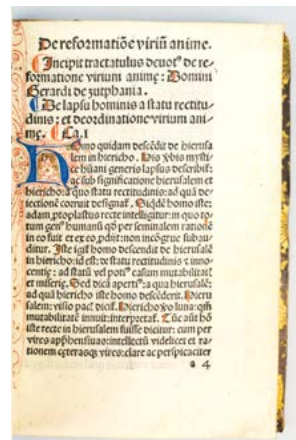 De reformatiõe viriũ anime.
Incipit tractatulus deuotꝰ de re-
formatione virium animę: Domini
Gerardi de zutphania.
De lapsu hominis a statu rectitu-
dinis: et deordinatione virium ani-
mę. Ca. I
Homo quidam descẽdit de hierusa
lem in hiericho. His ꝟbis mysti-
ce hũani generis lapsus describit̃:
ac sub significatione hierusalem et
hiericho: a quo statu rectitudinis: ad quã de-
iectionẽ coruit designat̃. Siqdẽ homo iste:
adam ꝓtoplastus recte intelligitur: in quo to-
tum genꝰ humanũ qđ per seminalem rationẽ
in eo fuit et ex eo ꝓdijt: non incõgrue subau-
ditur. Iste igit̃ homo descendit de hierusalẽ
in hiericho: id est: de statu rectitudinis ⁊ inno-
centię: ad statũ vel potiꝰ casum mutabilitat̃
et miserię. Sed dicã apertiꝰ: a qua hierusalẽ:
ad quã hiericho iste homo descẽderit. Hieru
salem: visio pacꝭ dicit̃. Hiericho ꝟo luna: qm̃
mutabilitatẽ innuit: interpretat̃. Tũc aũt hõ
iste recte in hierusalem fuisse dicitur: cum per
vires apphensiuas: intellectũ videlicet et ra-
tionem cęterasqꝫ vires: clare ac perspicaciter
a 4